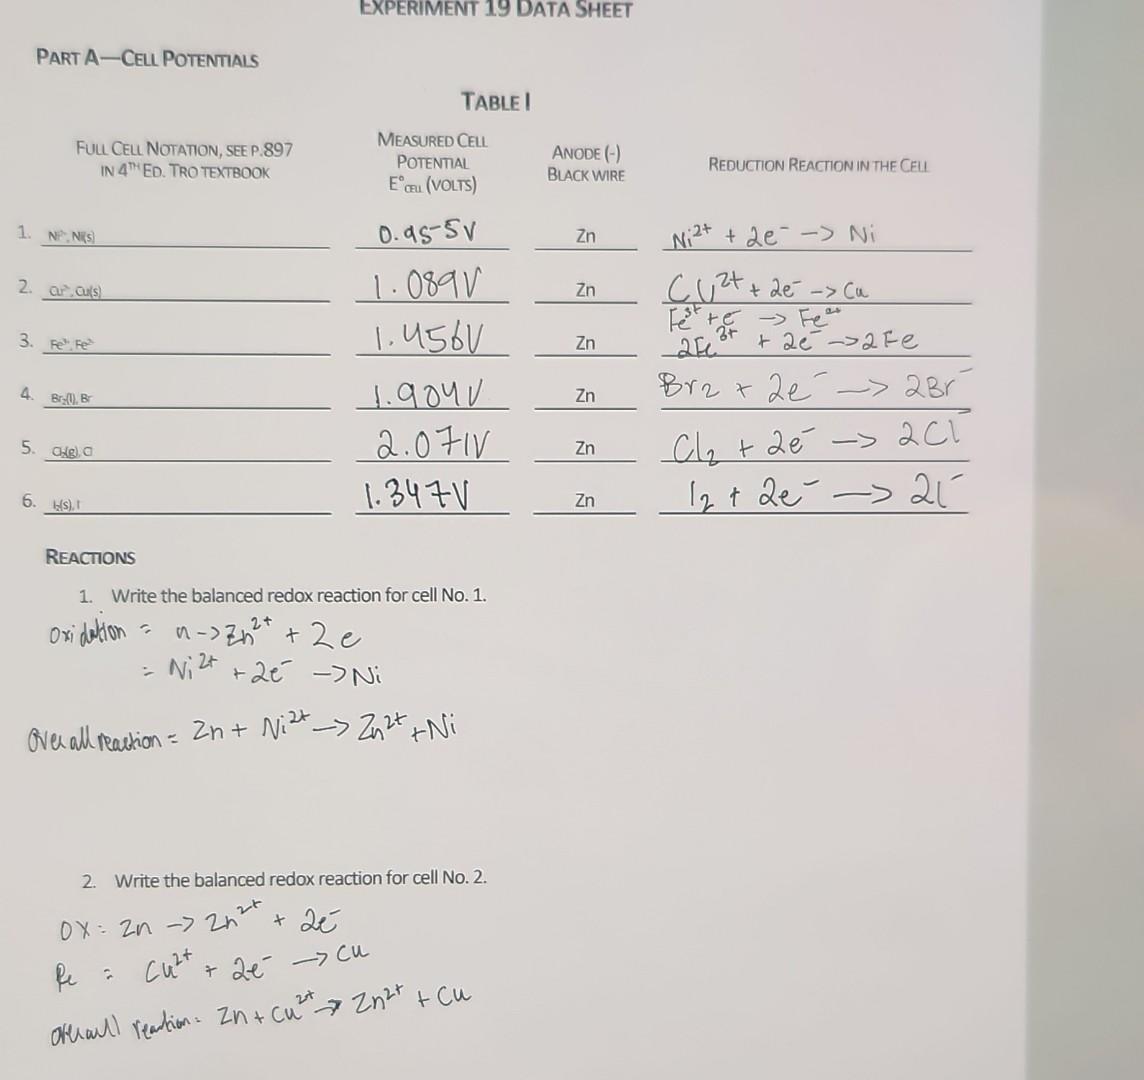 EXPERIMENT 19 DATA SHEET
PART A—CELL POTENTIALS
TABLE I
FULL CELL NOTATION, SEE P.897 IN 4TH ED. TRO TEXTBOOK
MEASURED CELL POTENTIAL E°CELL (VOLTS)
ANODE (-) BLACK WIRE
REDUCTION REACTION IN THE CELL
1. Ni²⁺, Ni(s) 0.955V Zn Ni²⁺ + 2e⁻ -> Ni
2. Cu²⁺, Cu(s) 1.089V Zn Cu²⁺ + 2e⁻ -> Cu
Fe³⁺ + e⁻ -> Fe²⁺
3. Fe³⁺, Fe²⁺ 1.456V Zn 2Fe³⁺ + 2e⁻ -> 2Fe
4. Br₂(l), Br 1.904V Zn Br2 + 2e⁻ -> 2Br⁻
5. Cl₂(g), Cl 2.071V Zn Cl₂ + 2e⁻ -> 2Cl⁻
6. I₂(s), I 1.347V Zn I₂ + 2e⁻ -> 2I⁻
REACTIONS
1. Write the balanced redox reaction for cell No. 1.
Oxidation = n -> Zn²⁺ + 2e
= Ni²⁺ + 2e⁻ -> Ni
Overall reaction = Zn + Ni²⁺ -> Zn²⁺ + Ni
2. Write the balanced redox reaction for cell No. 2.
OX = Zn -> Zn²⁺ + 2e⁻
Re = Cu²⁺ + 2e⁻ -> Cu
overall reaction = Zn + Cu²⁺ -> Zn²⁺ + Cu